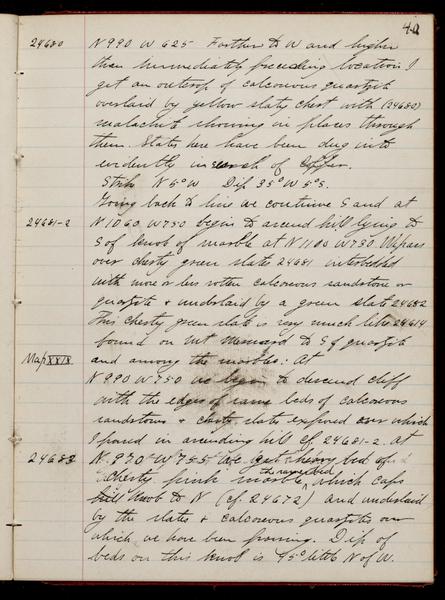 40
24680 N 990 W 625 Farther to W and higher
than immediately preceding location I
get an outcrop of calcareous quartzite
overlaid by yellow slaty chert with (24680)
malachite showing in places through
them. Slates here have been dug into
evidently in search of copper.
Strike N 5° W Dip 35° W 5° S.
Going back to line we continue S and at
24681-2 N 1060 W 750 begin to ascend hill lying to
S of knob of marble at N 1100 W 730. We pass
over cherty green slates 24681 interbedded
with more or less rotten calcareous sandstone or
quartzite & underlaid by a green slate 24682
This cherty green slate is very much like 24614
found on to S of quartzite
Map XXIX and among the marbles: At
N 990 W 750 we begin to descend cliff
with the edges of same beds of calcareous
sandstones & cherty slates exposed over which
I found in ascending hill cf. 24681-2. At
24683 N. 970 W 755 we get heavy bed of
cherty pink marble, the same bed which caps
hill knob to N (cf. 24672) and underlaid
by the slates & calcareous quartzite over
which we have been passing. Dip of
beds on this knob is 45° little N of W.